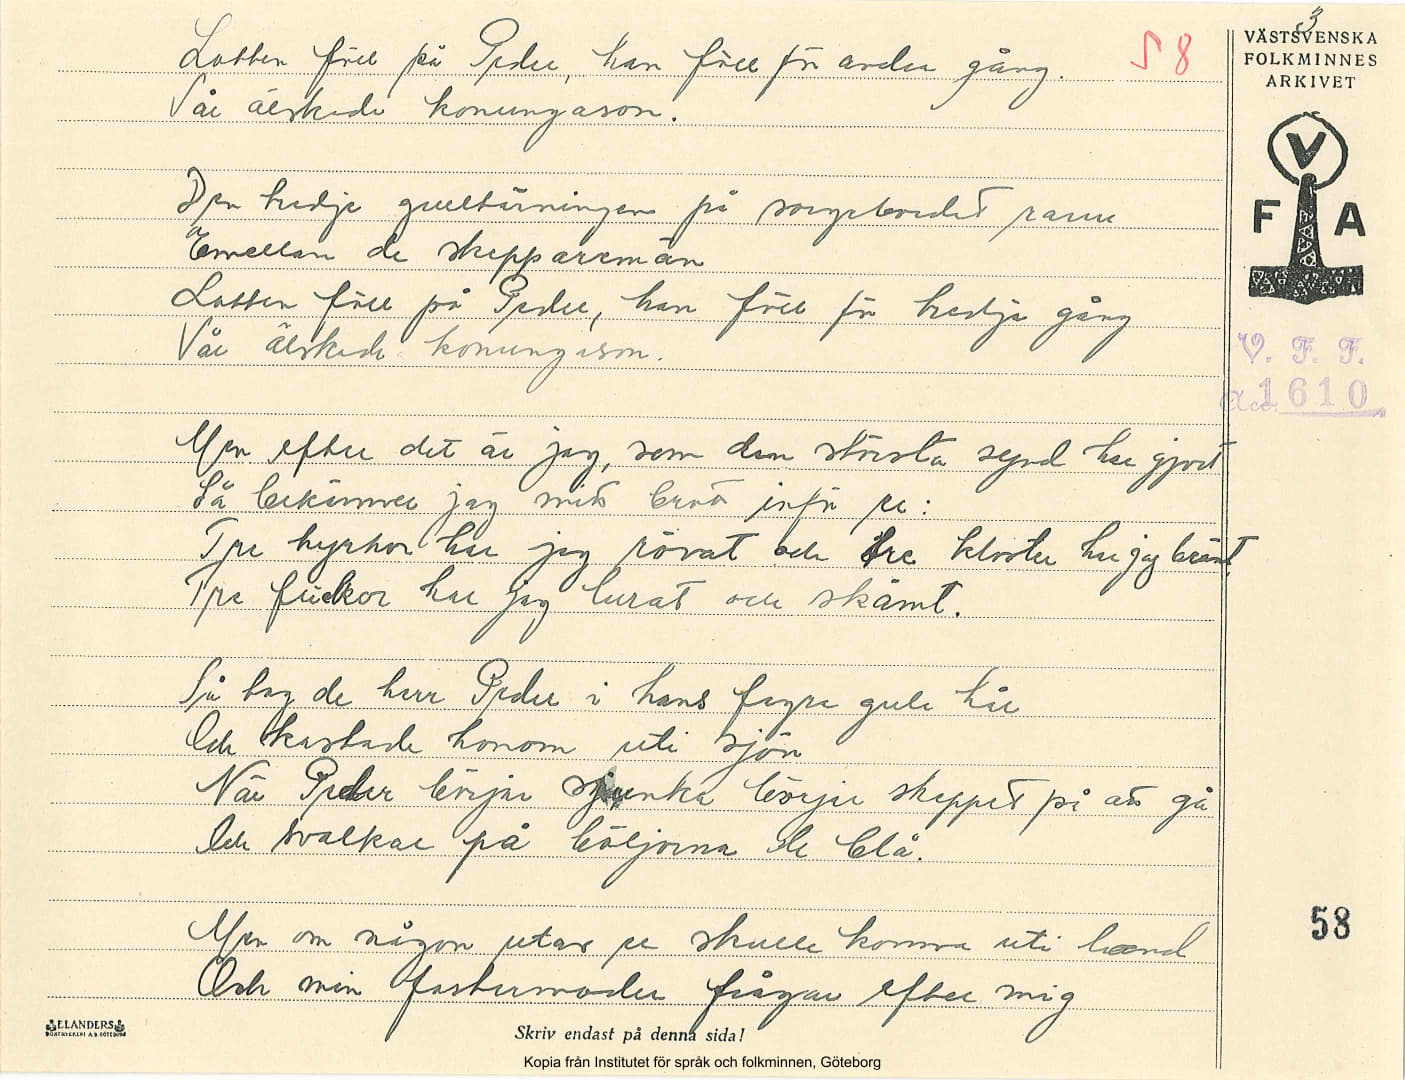 3
58
VÄSTSVENSKA
FOLKMINNES
ARKIVET
V
F A
V. F. F.
Acc. 1610
Lotten föll på Peder, han föll för andra gång.
Vår älskade konungason.
Den tredje gulltärningen på sorgebordet rann
Emellan de skepparemän
Lotten föll på Peder, han föll för tredje gång
Vår älskade konungason.
Men efter det är jag, som den största synd har gjort
Så bekänner jag mitt brott inför er:
Tre kyrkor har jag rövat och tre kloster har jag bränt
Tre flickor har jag lurat och skämt.
Så tog de herr Peder i hans fagra gula hår
Och kastade honom uti sjön
När Peder börjar sjunka börjar skeppet på att gå
Och svalkar på böljorna de blå.
Men om någon utav er skulle komma uti land
Och min fostermoder frågar efter mig
58
ELANDERS
BOKTRYCKERI A.B. GÖTEBORG
Skriv endast på denna sida!
Kopia från Institutet för språk och folkminnen, Göteborg